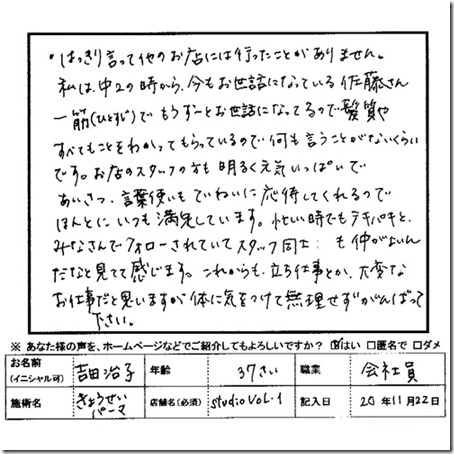 ・はっきり言って他のお店には行ったことがありません。
私は、中2の時から、今もお世話になっている佐藤さん
一筋(ひとすじ)でもうずーとお世話になってるので髪質や
すべてもことをわかってもらっているので何も言うことがないくらい
です。お店のスタッフの方も明るく元気いっぱいで
あいさつ、言葉使いもていねいに応待してくれるので
ほんとにいつも満足しています。忙しい時でもテキパキと、
みなさんでフォローされていてスタッフ同士も仲がよいん
だなと見てて感じます。これからも、立ち仕事とか、大変な
お仕事だと思いますが体に気をつけて無理せずがんばって
下さい。
※ あなた様の声を、ホームページなどでご紹介してもよろしいですか？ ☑はい □匿名で □ダメ
お名前(イニシャル可) 吉田治子 年齢 37さい 職業 会社員
施術名 きょうせいパーマ 店舗名(必須) studio VOL.1 記入日 20年11月22日